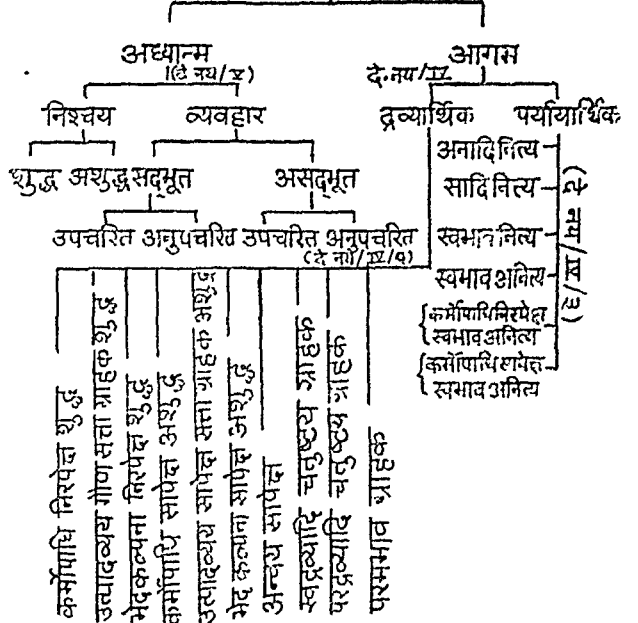 अध्यात्म
(दे नय/V)
आगम
दे.नय/IV
निश्चय
व्यवहार
द्रव्यार्थिक
पर्यायार्थिक
शुद्ध
अशुद्ध
सद्भूत
असद्भूत
उपचरित
अनुपचरित
उपचरित
अनुपचरित
(दे नय/IV/२)
अनादि नित्य
सादि नित्य
स्वभाव नित्य
स्वभाव अनित्य
कर्मोपाधि निरपेक्ष
स्वभाव अनित्य
कर्मोपाधि सापेक्ष
स्वभाव अनित्य
(दे नय/IV/३)
कर्मोपाधि निरपेक्ष शुद्ध
उत्पादव्यय गौण सत्ता ग्राहक शुद्ध
भेदकल्पना निरपेक्ष शुद्ध
कर्मोपाधि सापेक्ष अशुद्ध
उत्पादव्यय सापेक्ष सत्ता ग्राहक अशुद्ध
भेद कल्पना सापेक्ष अशुद्ध
अन्वय सापेक्ष
स्वद्रव्यादि चतुष्टय ग्राहक
परद्रव्यादि चतुष्टय ग्राहक
परमभाव ग्राहक